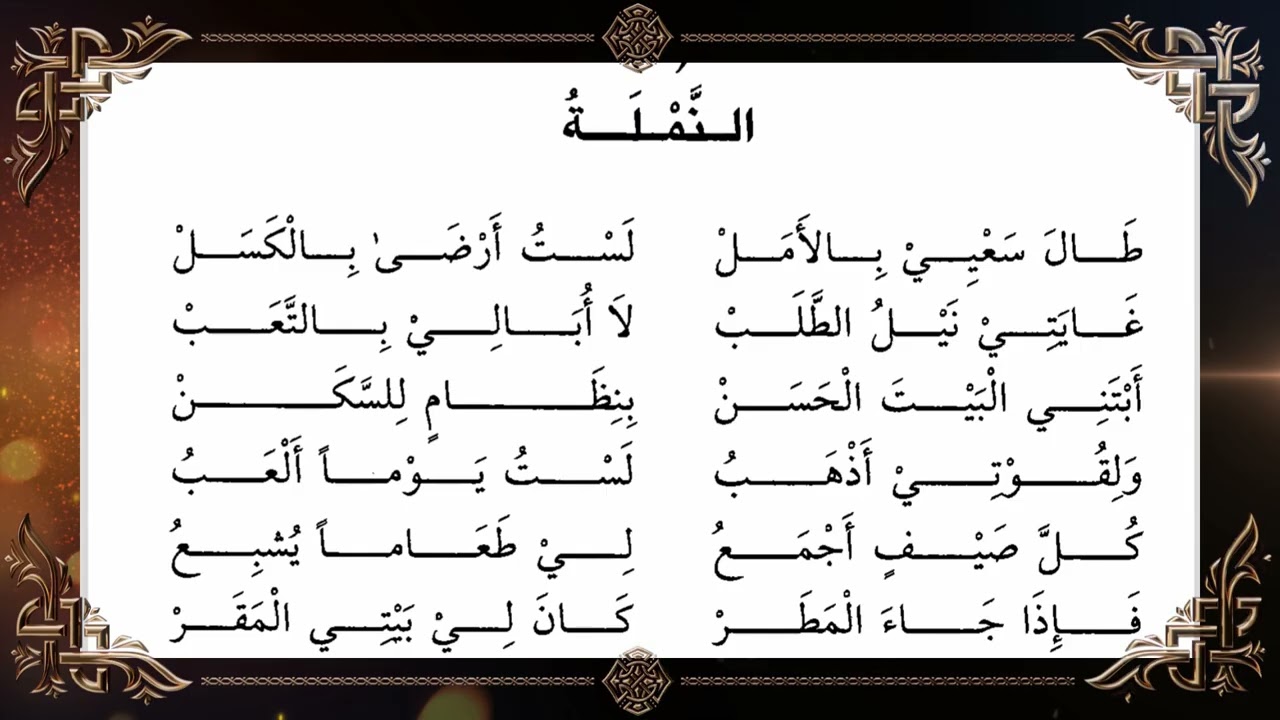 النَّمْلَةُ
طَالَ سَعْيِيْ بِالأَمَلْ لَسْتُ أَرْضَىٰ بِالْكَسَلْ
غَايَتِيْ نَيْلُ الطَّلَبْ لاَ أُبَالِيْ بِالتَّعَبْ
أَبْتَنِي الْبَيْتَ الْحَسَنْ بِنِظَامٍ لِلسَّكَنْ
وَلِقُوْتِيْ أَذْهَبُ لَسْتُ يَوْماً أَلْعَبُ
كُلَّ صَيْفٍ أَجْمَعُ لِيْ طَعَاماً يُشبِعُ
فَإِذَا جَاءَ الْمَطَرْ كَانَ لِيْ بَيْتِي الْمَقَرْ